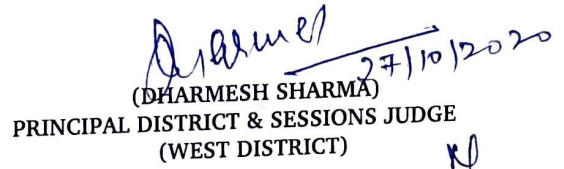 Dharmesh
27/10/2020
(DHARMESH SHARMA)
PRINCIPAL DISTRICT & SESSIONS JUDGE
(WEST DISTRICT)